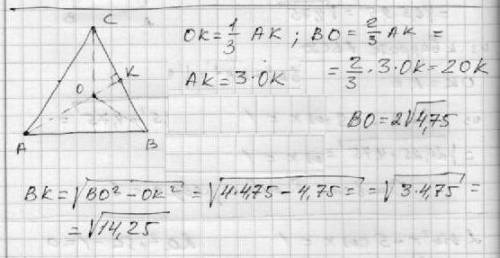 C
K
O
A
B
OK = 1/3 AK ; BO = 2/3 AK =
AK = 3·OK
= 2/3 · 3·OK = 2OK
BO = 2√4,75
BK = √(BO² - OK²) = √(4·4,75 - 4,75) = √(3·4,75) =
= √14,25